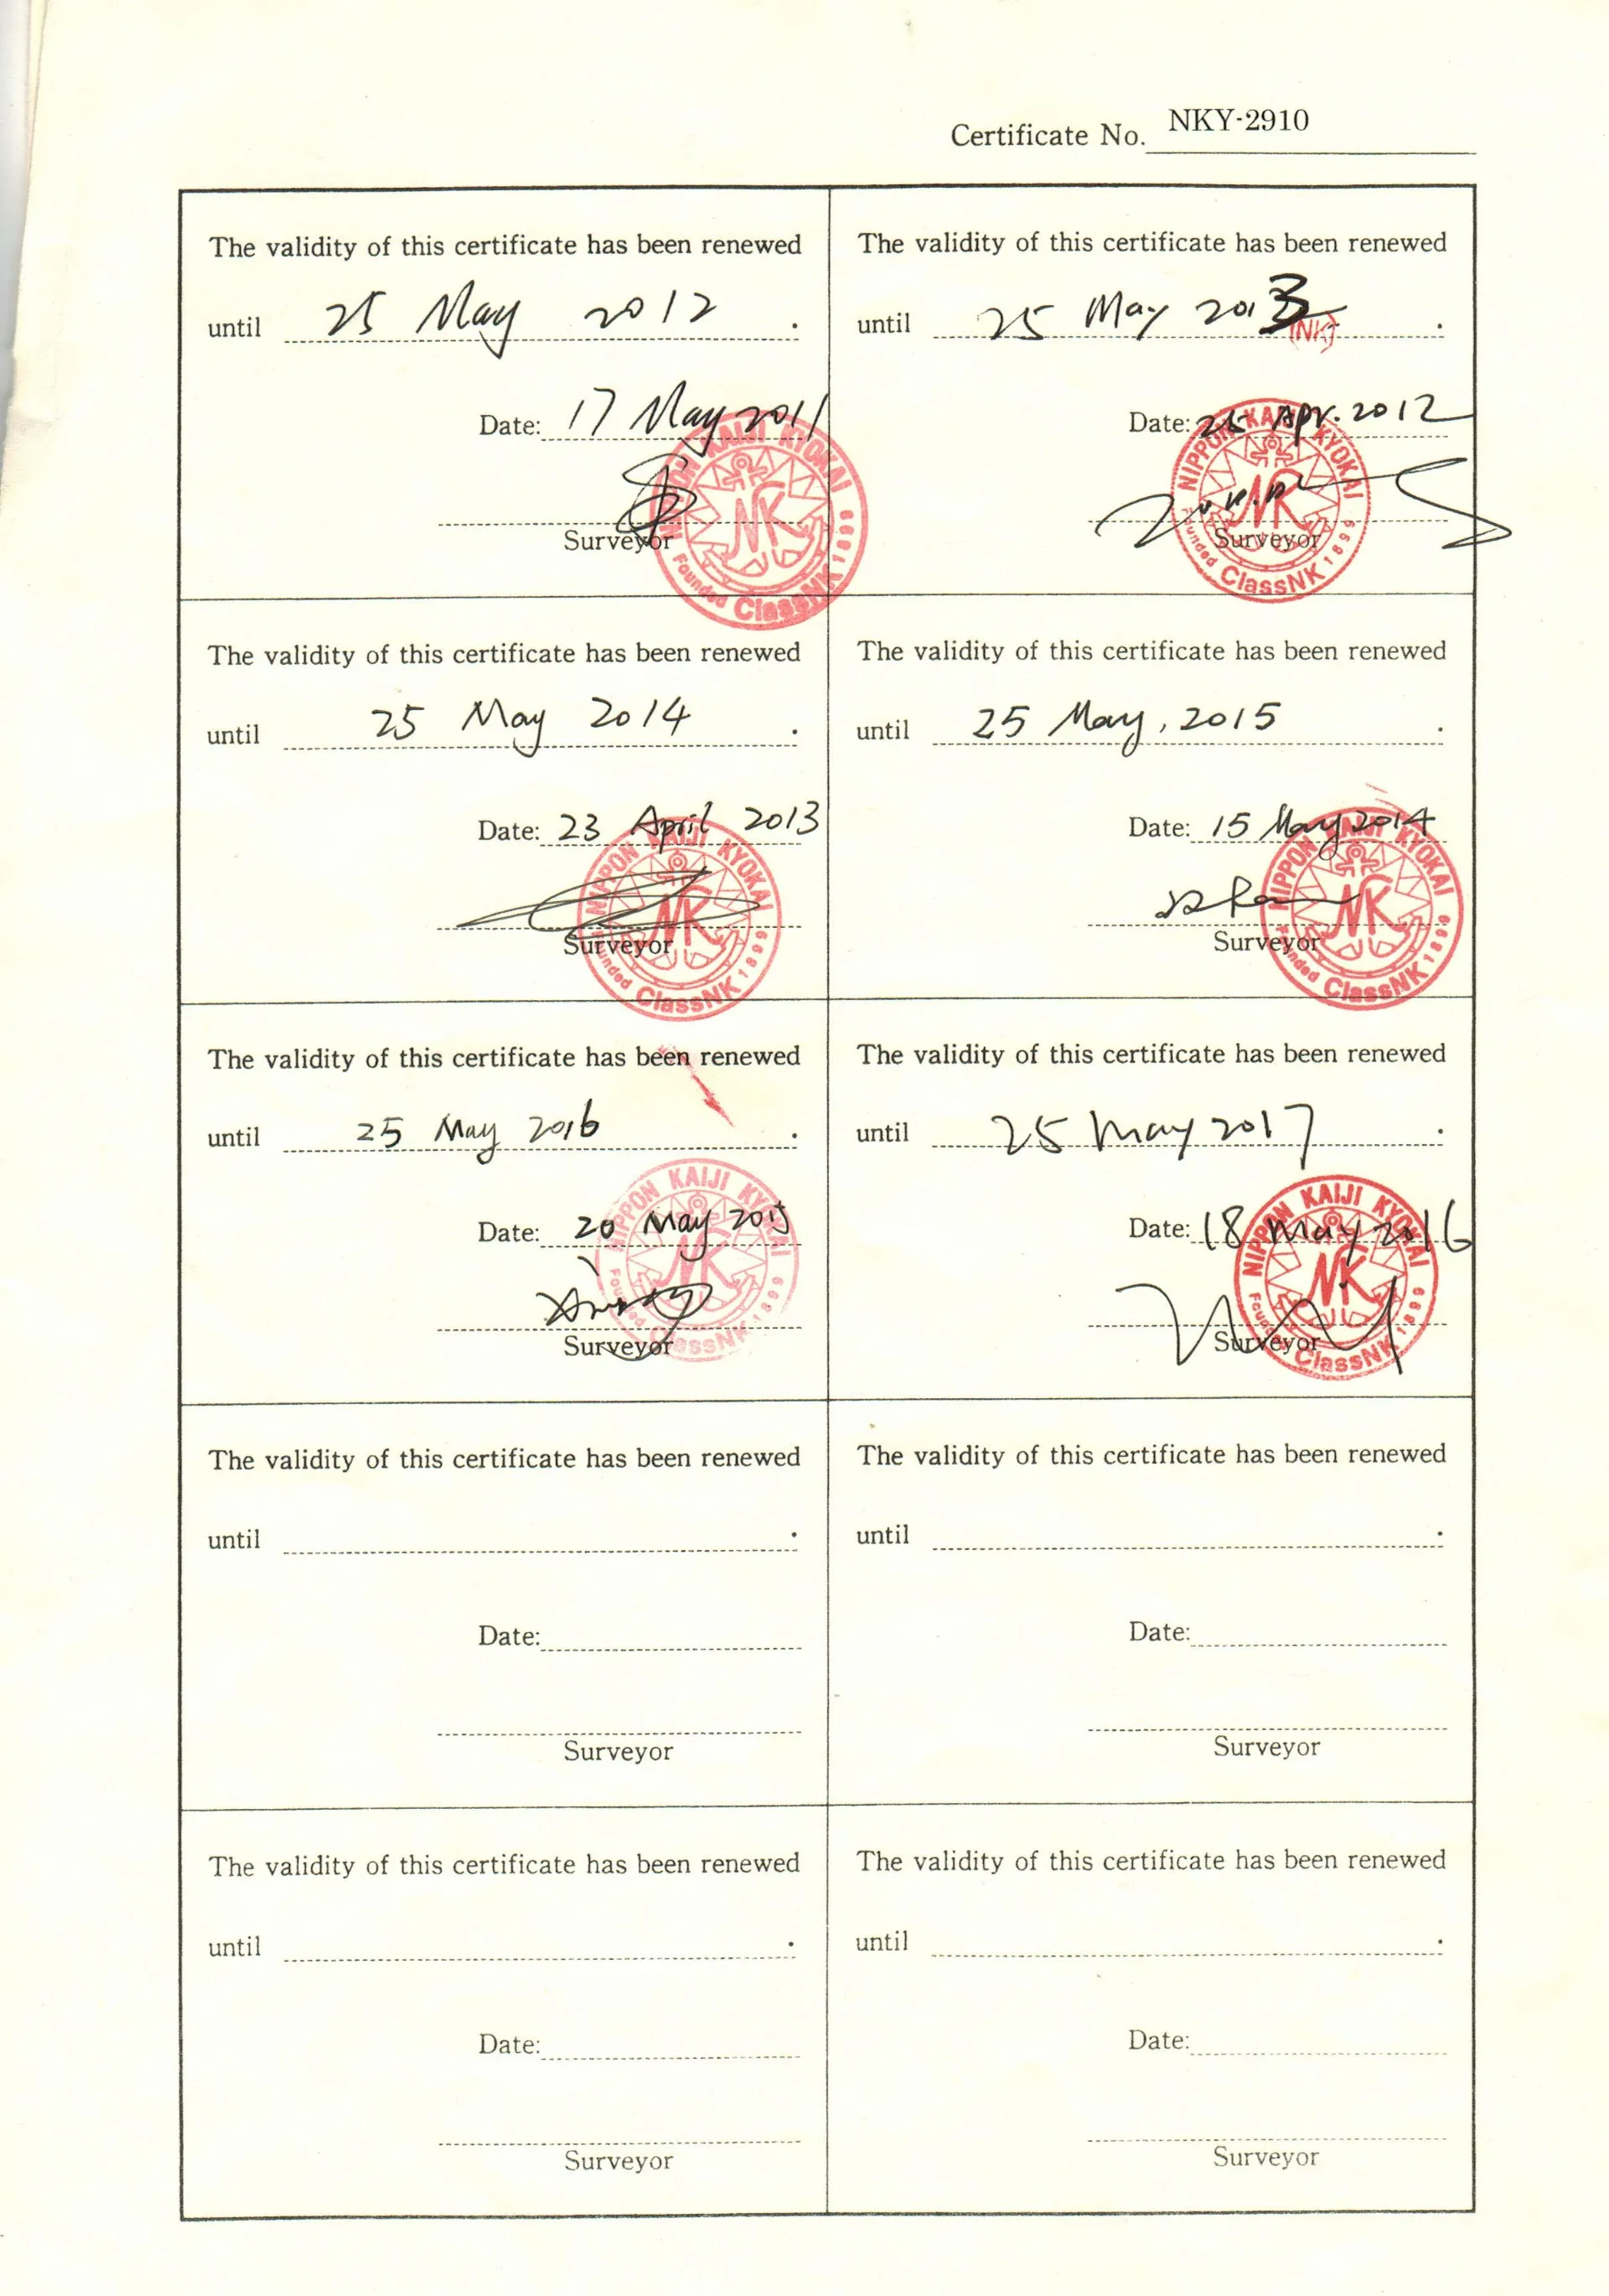 Certificate No. NKY-2910
The validity of this certificate has been renewed
until 25 May 2012 .
Date: 17 May 2011
Surveyor
NIPPON KAIJI KYOKAI
Founded 1899
ClassNK
NK
The validity of this certificate has been renewed
until 25 May 2013 .
NK
Date: 25 Apr. 2012
Surveyor
NIPPON KAIJI KYOKAI
Founded 1899
ClassNK
NK
The validity of this certificate has been renewed
until 25 May 2014 .
Date: 23 April 2013
Surveyor
NIPPON KAIJI KYOKAI
Founded 1899
ClassNK
NK
The validity of this certificate has been renewed
until 25 May, 2015 .
Date: 15 May 2014
Surveyor
NIPPON KAIJI KYOKAI
Founded 1899
ClassNK
NK
The validity of this certificate has been renewed
until 25 May 2016 .
Date: 20 May 2015
Surveyor
NIPPON KAIJI KYOKAI
Founded 1899
ClassNK
NK
The validity of this certificate has been renewed
until 25 May 2017 .
Date: 18 May 2016
Surveyor
NIPPON KAIJI KYOKAI
Founded 1899
ClassNK
NK
The validity of this certificate has been renewed
until .
Date:
Surveyor
The validity of this certificate has been renewed
until .
Date:
Surveyor
The validity of this certificate has been renewed
until .
Date:
Surveyor
The validity of this certificate has been renewed
until .
Date:
Surveyor